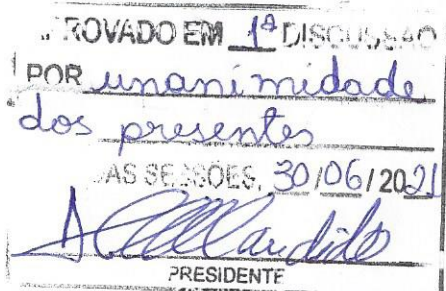 .ROVADO EM 1ª DISCUSSÃO
POR unanimidade
dos presentes
AS SESSÕES, 30/06/2021
PRESIDENTE